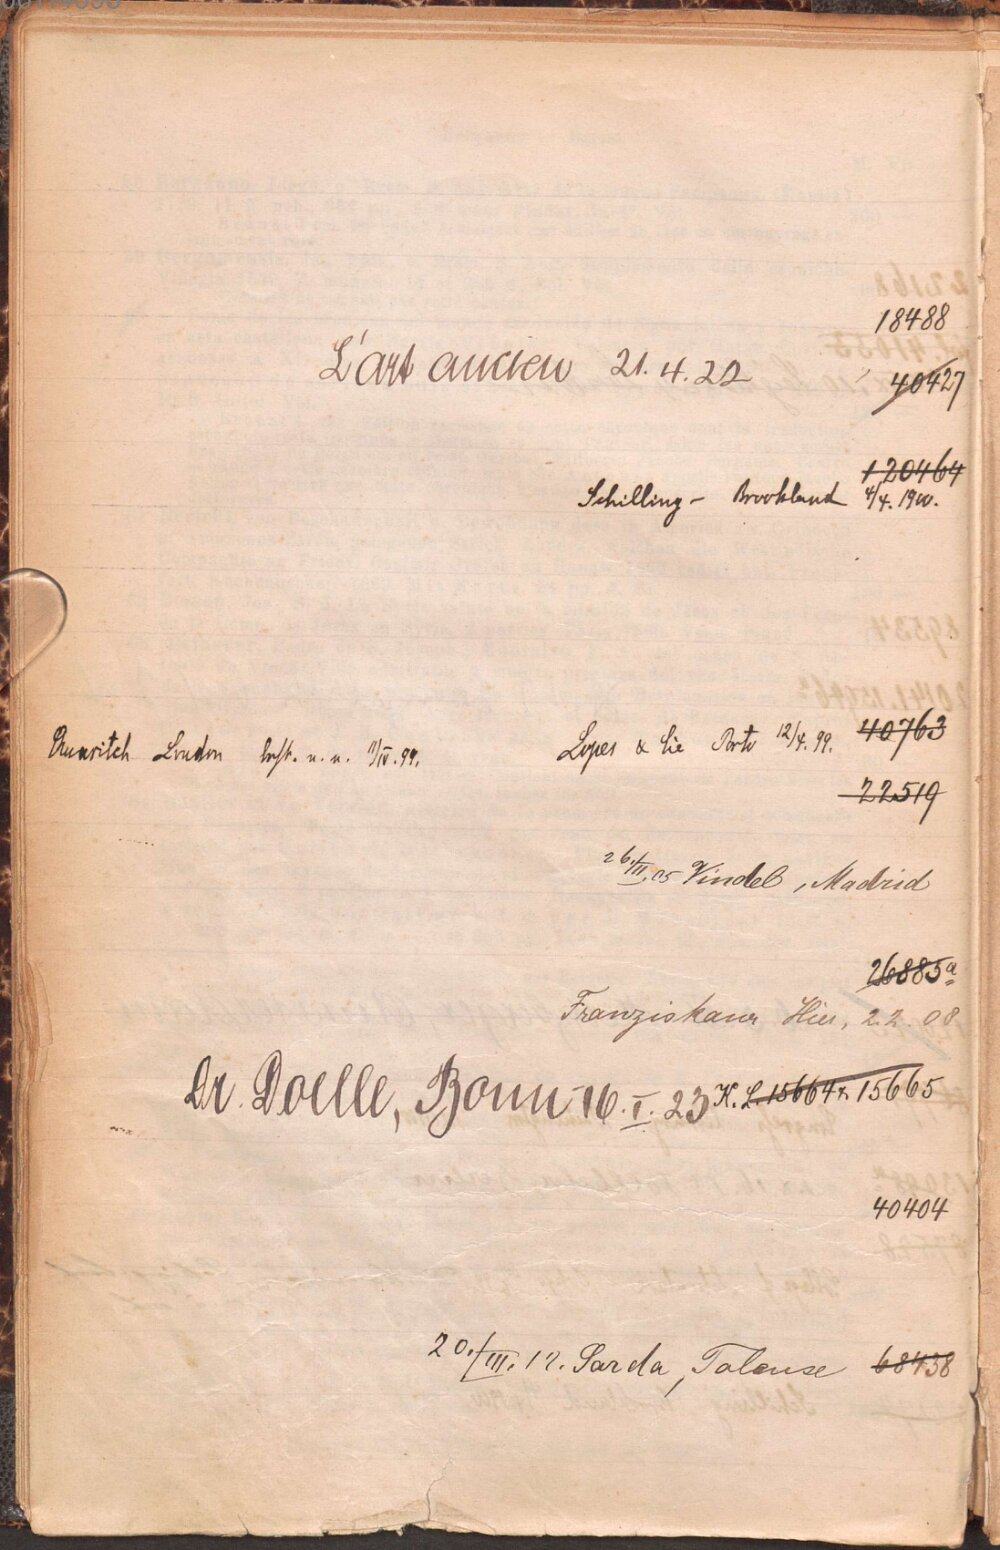 18488
L'art ancien 21.4.22 40427
120464
Schilling - Brookland 4/4. 1900.
Quaritch London 11/IV.99. Lopes & Cie Porto 12/4.99. 40763
22519
26/II.05 Vindel, Madrid
26885a
Franziskaner Hier, 2.2.08
Dr. Doelle, Bonn 16.I.23 K.L. 15664 r. 15665
40404
20./III.12. Sarda, Tolouse 68438